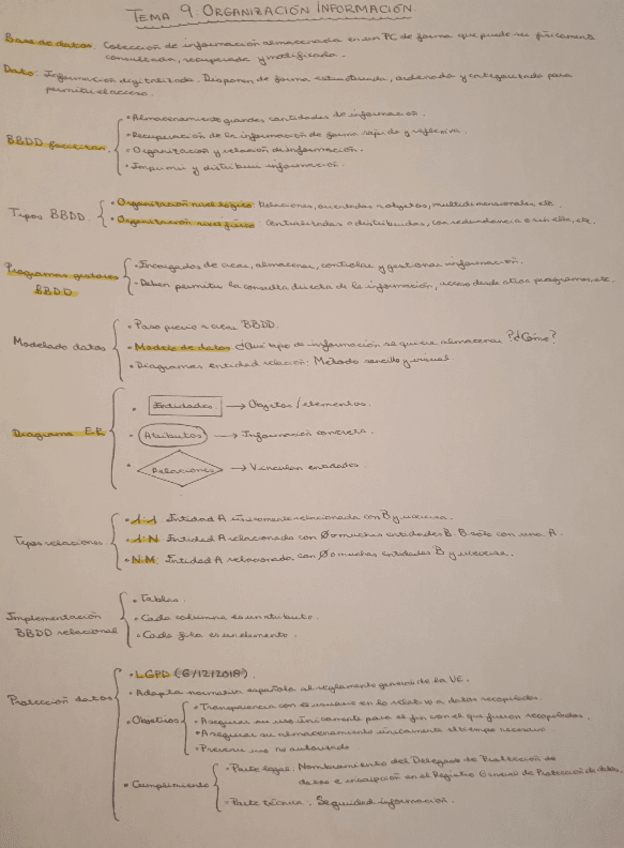 TEMA 9: ORGANIZACIÓN INFORMACIÓN.
Base de datos: Colección de información almacenada en un PC de forma que puede ser fácilmente
consultada, recuperada y modificada.
Dato: Información digitalizada. Disponen de forma estructurada, ordenada y categorizada para
permitir el acceso.
BBDD facilitan:
• Almacenamiento grandes cantidades de información.
• Recuperación de la información de forma rápida y
• Organización y relación de información.
• Imprimir y distribuir información.
Tipos BBDD
• Organización nivel lógico: Relaciones, orientadas a objetos, multidimensionales, etc.
• Organización nivel físico: Centralizadas o distribuidas, con redundancia o sin ella, etc.
Programas gestores
BBDD
• Encargados de crear, almacenar, controlar y gestionar información.
• Deben permitir la consulta directa de la información, acceso desde otros programas, etc.
Modelado datos
• Paso previo a crear BBDD.
• Modelo de datos: ¿Qué tipo de información se quiere almacenar? ¿Cómo?
• Diagramas entidad relación: Método sencillo y visual
Diagrama ER
• Entidades → Objetos / elementos.
• Atributos → Información concreta.
• Relaciones → Vinculan entidades.
Tipos relaciones
• 1:1. Entidad A únicamente relacionada con B y viceversa.
• 1:N. Entidad A relacionada con Ø o muchas entidades B. B sólo con una A.
• N:M. Entidad A relacionada con Ø o muchas entidades B y viceversa.
Implementación
BBDD relacional
• Tablas.
• Cada columna es un atributo.
• Cada fila es un elemento.
Protección datos
• LGPD (6/12/2018).
• Adapta normativa española al reglamento general de la UE.
• Objetivos
• Transparencia con el usuario en lo relativo a datos recopilados.
• Asegurar su uso únicamente para el fin con el que fueron recopilados.
• Asegurar su almacenamiento únicamente el tiempo necesario
• Prevenir uso no autorizado
• Cumplimiento
• Parte legal: Nombramiento del Delegado de Protección de
datos e inscripción en el Registro General de Protección de datos.
• Parte técnica: Seguridad información.